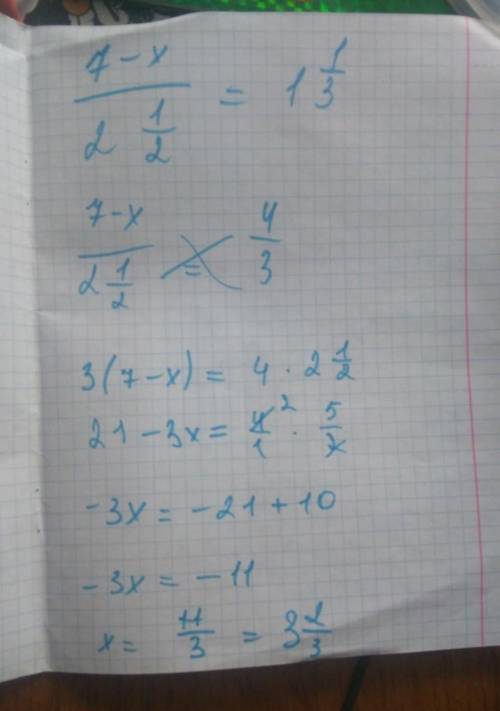 7-x / 2 1/2 = 1 1/3
7-x / 2 1/2 = 4/3
3(7-x) = 4 · 2 1/2
21-3x = 4/1 2 · 5/2
-3x = -21+10
-3x = -11
x = 11/3 = 3 2/3